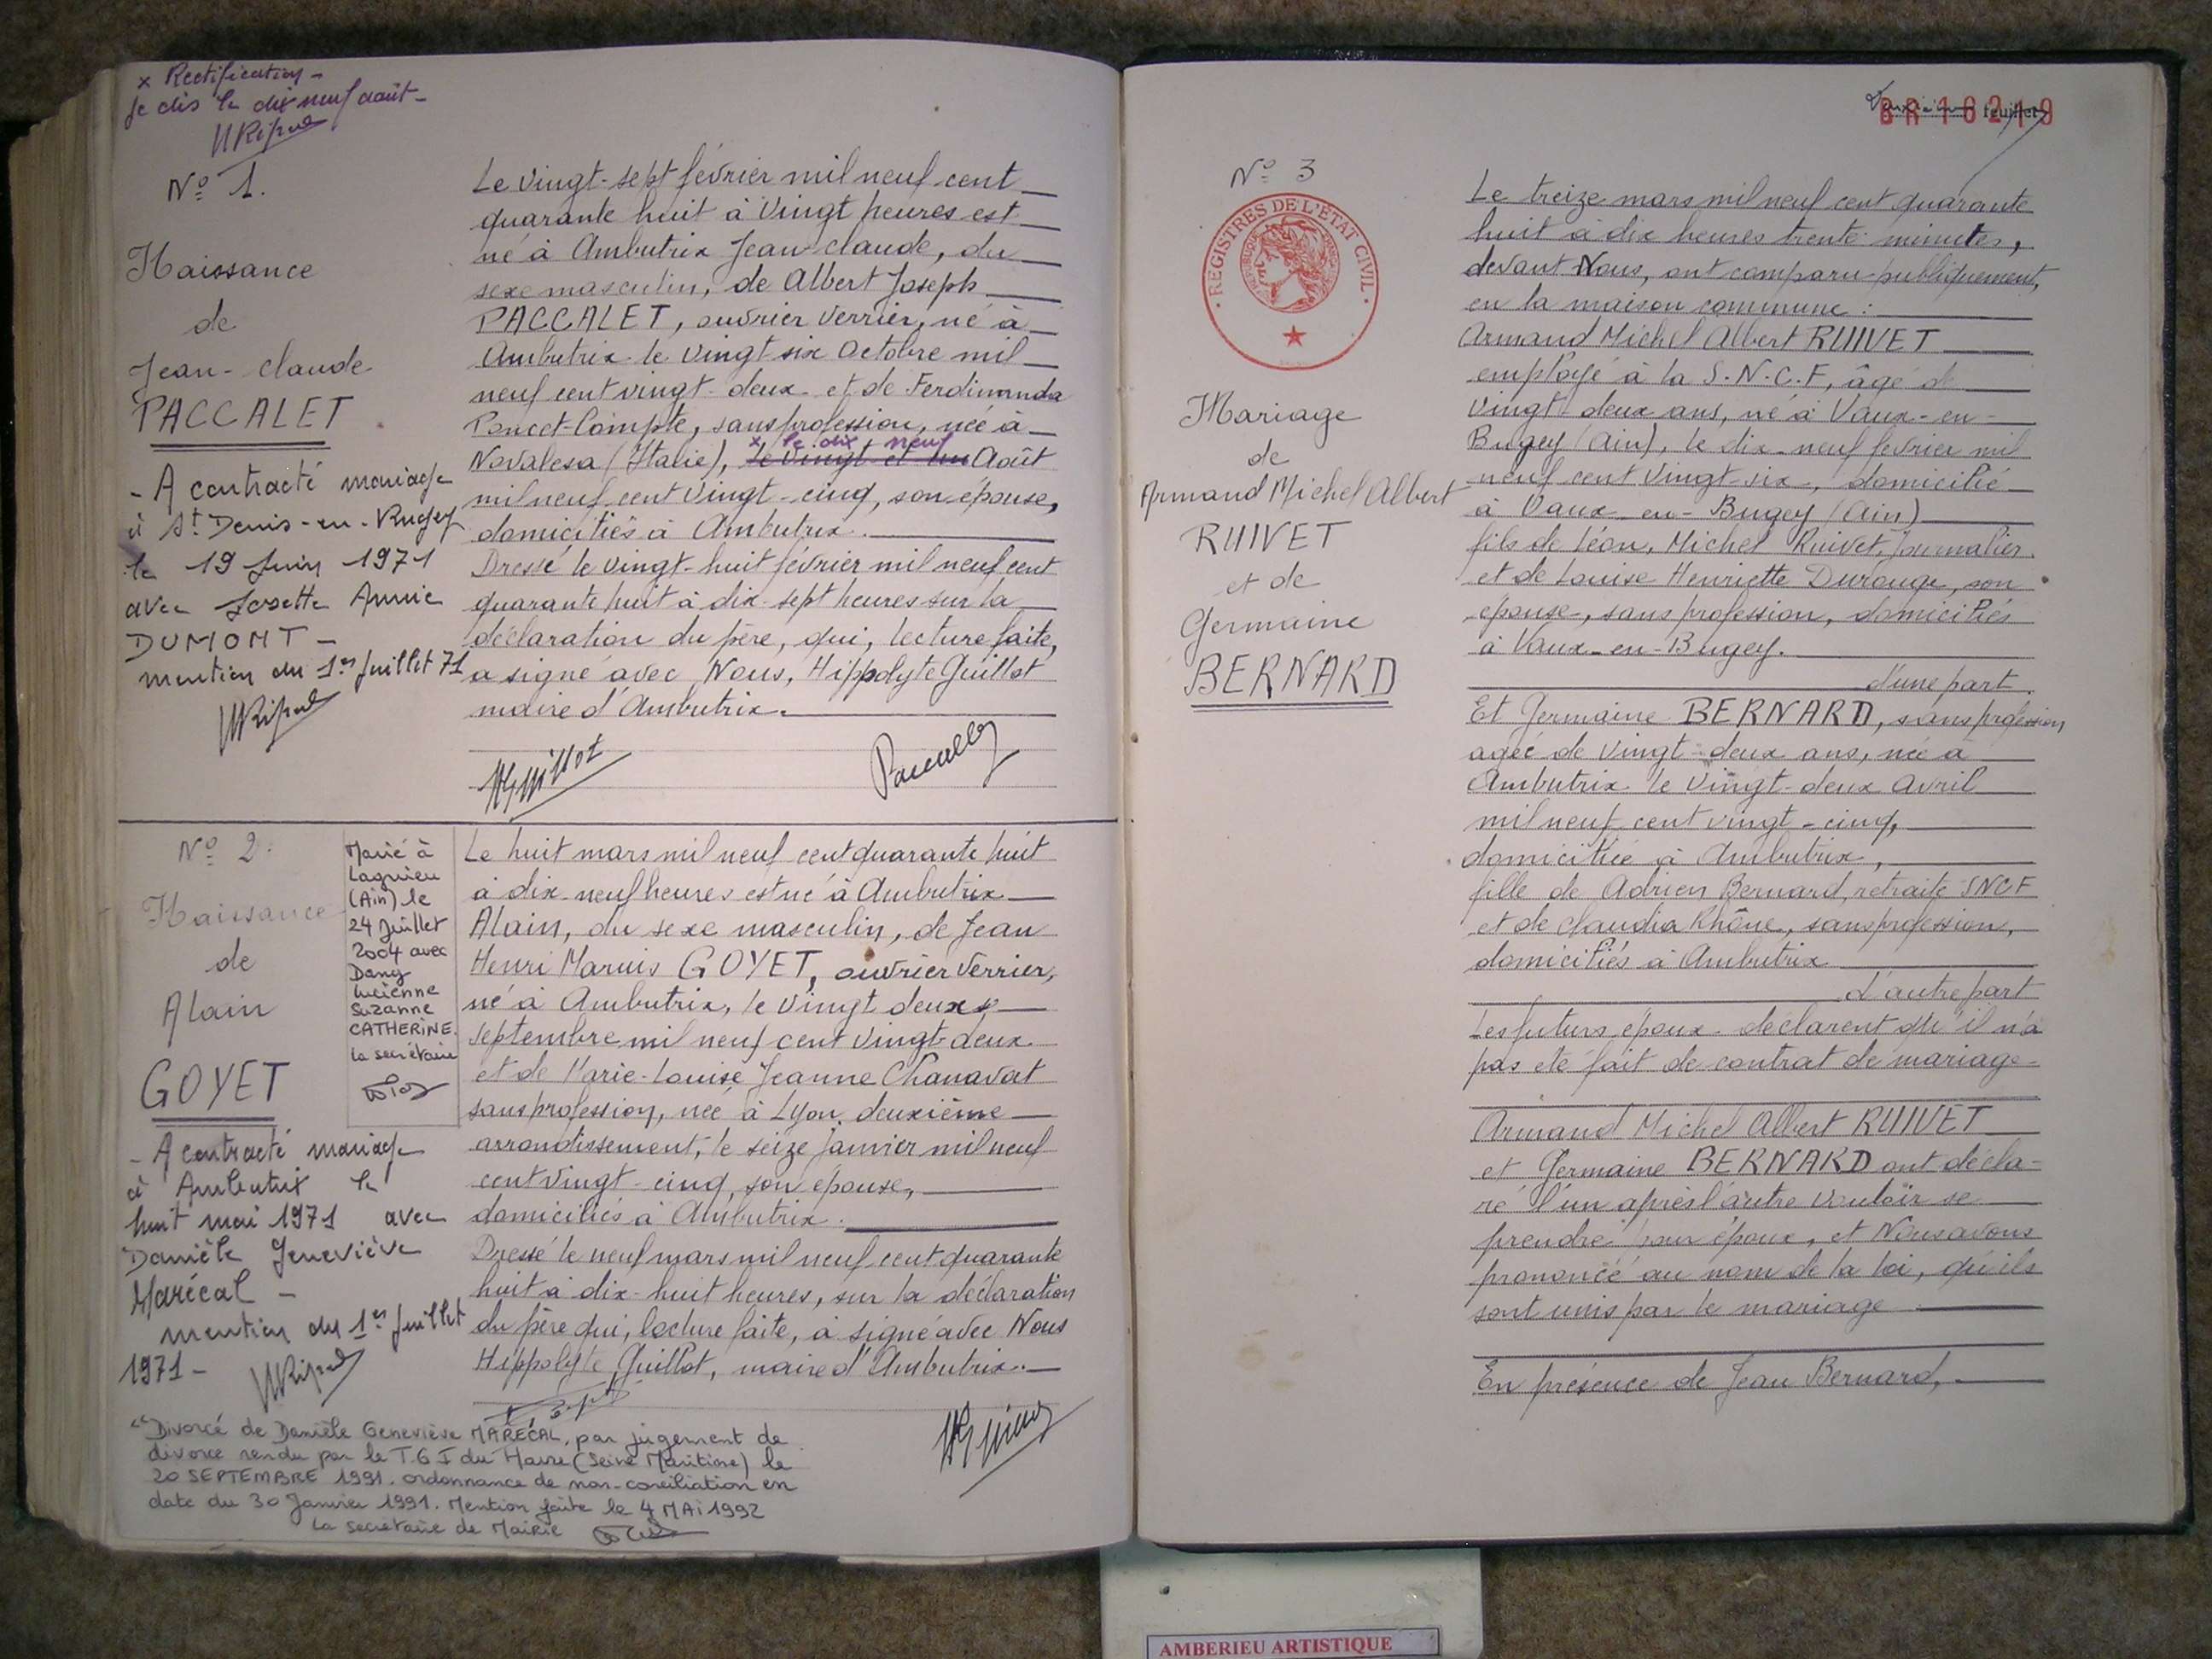 x Rectification -
je dis le dix neuf août -
No 1.
Naissance
de
Jean-Claude
PACCALET
- A contracté mariage
à St Denis-en-Bugey
le 19 Juin 1971
avec Josette Annie
DUMONT -
mention du 1er Juillet 71
Le vingt-sept février mil neuf cent
quarante huit à vingt heures est
né à Ambutrix Jean-Claude, du
sexe masculin, de Albert Joseph
PACCALET, ouvrier verrier, né à
Ambutrix le vingt six Octobre mil
neuf cent vingt-deux et de Ferdinanda
Poncet-Compte, sans profession, née à
x le dix neuf
Novalesa (Italie), le vingt et un Août
mil neuf cent vingt-cinq, son épouse,
domiciliés à Ambutrix.
Dressé le vingt-huit février mil neuf cent
quarante huit à dix-sept heures sur la
déclaration du père, qui, lecture faite,
a signé avec Nous, Hippolyte Guillot
maire d'Ambutrix.
HGuillot
Paccalet
No 2.
Naissance
de
Alain
GOYET
Marié à
Lagnieu
(Ain) le
24 Juillet
2004 avec
Dany
Lucienne
Suzanne
CATHERINE.
La secrétaire
- A contracté mariage
à Ambutrix le
huit mai 1971 avec
Danièle Geneviève
Marécal -
mention du 1er Juillet
1971 -
Le huit mars mil neuf cent quarante huit
à dix-neuf heures est né à Ambutrix
Alain, du sexe masculin, de Jean
Henri Marius GOYET, ouvrier verrier,
né à Ambutrix, le vingt deux
septembre mil neuf cent vingt-deux
et de Marie-Louise Jeanne Chanavat
sans profession, née à Lyon deuxième
arrondissement, le seize janvier mil neuf
cent vingt-cinq, son épouse,
domiciliés à Ambutrix.
Dressé le neuf mars mil neuf cent quarante
huit à dix-huit heures, sur la déclaration
du père qui, lecture faite, a signé avec Nous
Hippolyte Guillot, maire d'Ambutrix.
HGuillot
"Divorcé de Danièle Geneviève MARÉCAL, par jugement de
divorce rendu par le T.G.I du Havre (Seine Maritime) le
20 SEPTEMBRE 1991. Ordonnance de non-conciliation en
date du 30 Janvier 1991. Mention faite le 4 MAI 1992
La secrétaire de Mairie
feuillet
BR 16219
No 3
REGISTRES DE L'ETAT CIVIL
Mariage
de
Armand Michel Albert
RUIVET
et de
Germaine
BERNARD
Le treize mars mil neuf cent quarante
huit à dix heures trente minutes,
devant Nous, ont comparu publiquement,
en la maison commune :
Armand Michel Albert RUIVET
employé à la S.N.C.F, âgé de
vingt-deux ans, né à Vaux-en-
Bugey (Ain), le dix-neuf février mil
neuf cent vingt-six, domicilié
à Vaux-en-Bugey (Ain)
fils de Léon, Michel Ruivet, journalier
et de Louise Henriette Durouge, son
épouse, sans profession, domiciliés
à Vaux-en-Bugey.
d'une part.
Et Germaine BERNARD, sans profession
agée de vingt-deux ans, née à
Ambutrix le vingt-deux avril
mil neuf cent vingt-cinq,
domiciliée à Ambutrix,
fille de Adrien Bernard, retraité SNCF
et de Claudia Rhône, sans profession,
domiciliés à Ambutrix
d'autre part
Les futurs époux déclarent qu'il n'a
pas été fait de contrat de mariage
Armand Michel Albert RUIVET
et Germaine BERNARD ont décla-
ré l'un après l'autre vouloir se
prendre pour époux, et Nous avons
prononcé au nom de la loi, qu'ils
sont unis par le mariage
En présence de Jean Bernard,
AMBERIEU ARTISTIQUE